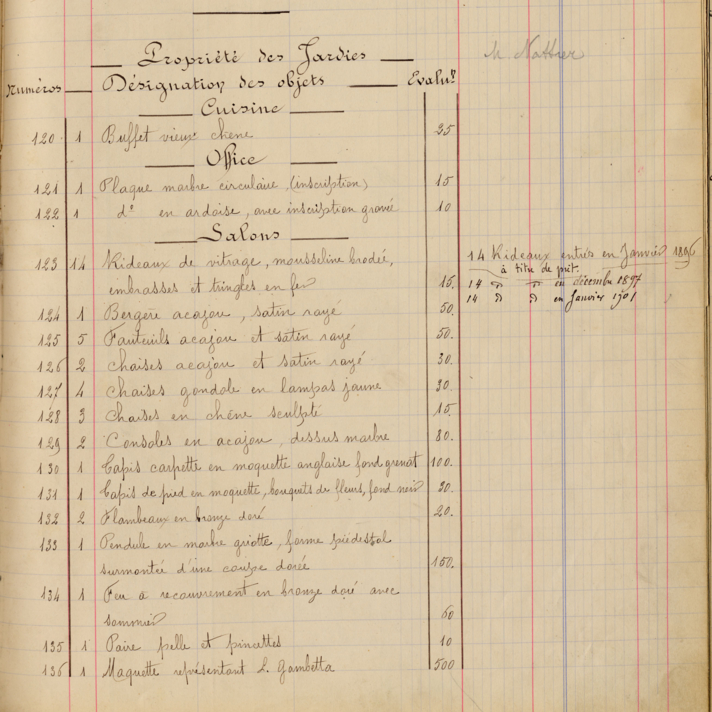 Propriété des Jardies
Numéros Désignation des objets Evalu.on
Cuisine
120 1 Buffet vieux chêne 25
Office
121 1 Plaque marbre circulaire, (inscription) 15
122 1 d° en ardoise, avec inscription gravé 10
Salons
123 14 Rideaux de vitrage, mousseline brodée,
embrasses et tringles en fer 15.
14 Rideaux entrés en Janvier 1896
à titre de prêt.
14 " " en décembre 1897
14 " " en Janvier 1901
124 1 Bergère acajou, satin rayé 50.
125 5 Fauteuils acajou et satin rayé 50.
126 2 Chaises acajou et satin rayé 30.
127 4 Chaises gondole en lampas jaune
128 3 Chaises en chêne sculpté 15.
129 2 Consoles en acajou, dessus marbre 80.
130 1 Tapis carpette en moquette anglaise fond grenat 100.
131 1 Tapis de pied en moquette, bouquets de fleurs, fond noir
132 2 Flambeaux en bronze doré 20.
133 1 Pendule en marbre griotte, forme piédestal
surmontée d'une coupe dorée 150.
134 1 Feu à recouvrement en bronze doré avec
sommier 60
135 1 Paire pelle et pincettes 10
136 1 Maquette représentant L. Gambetta 500